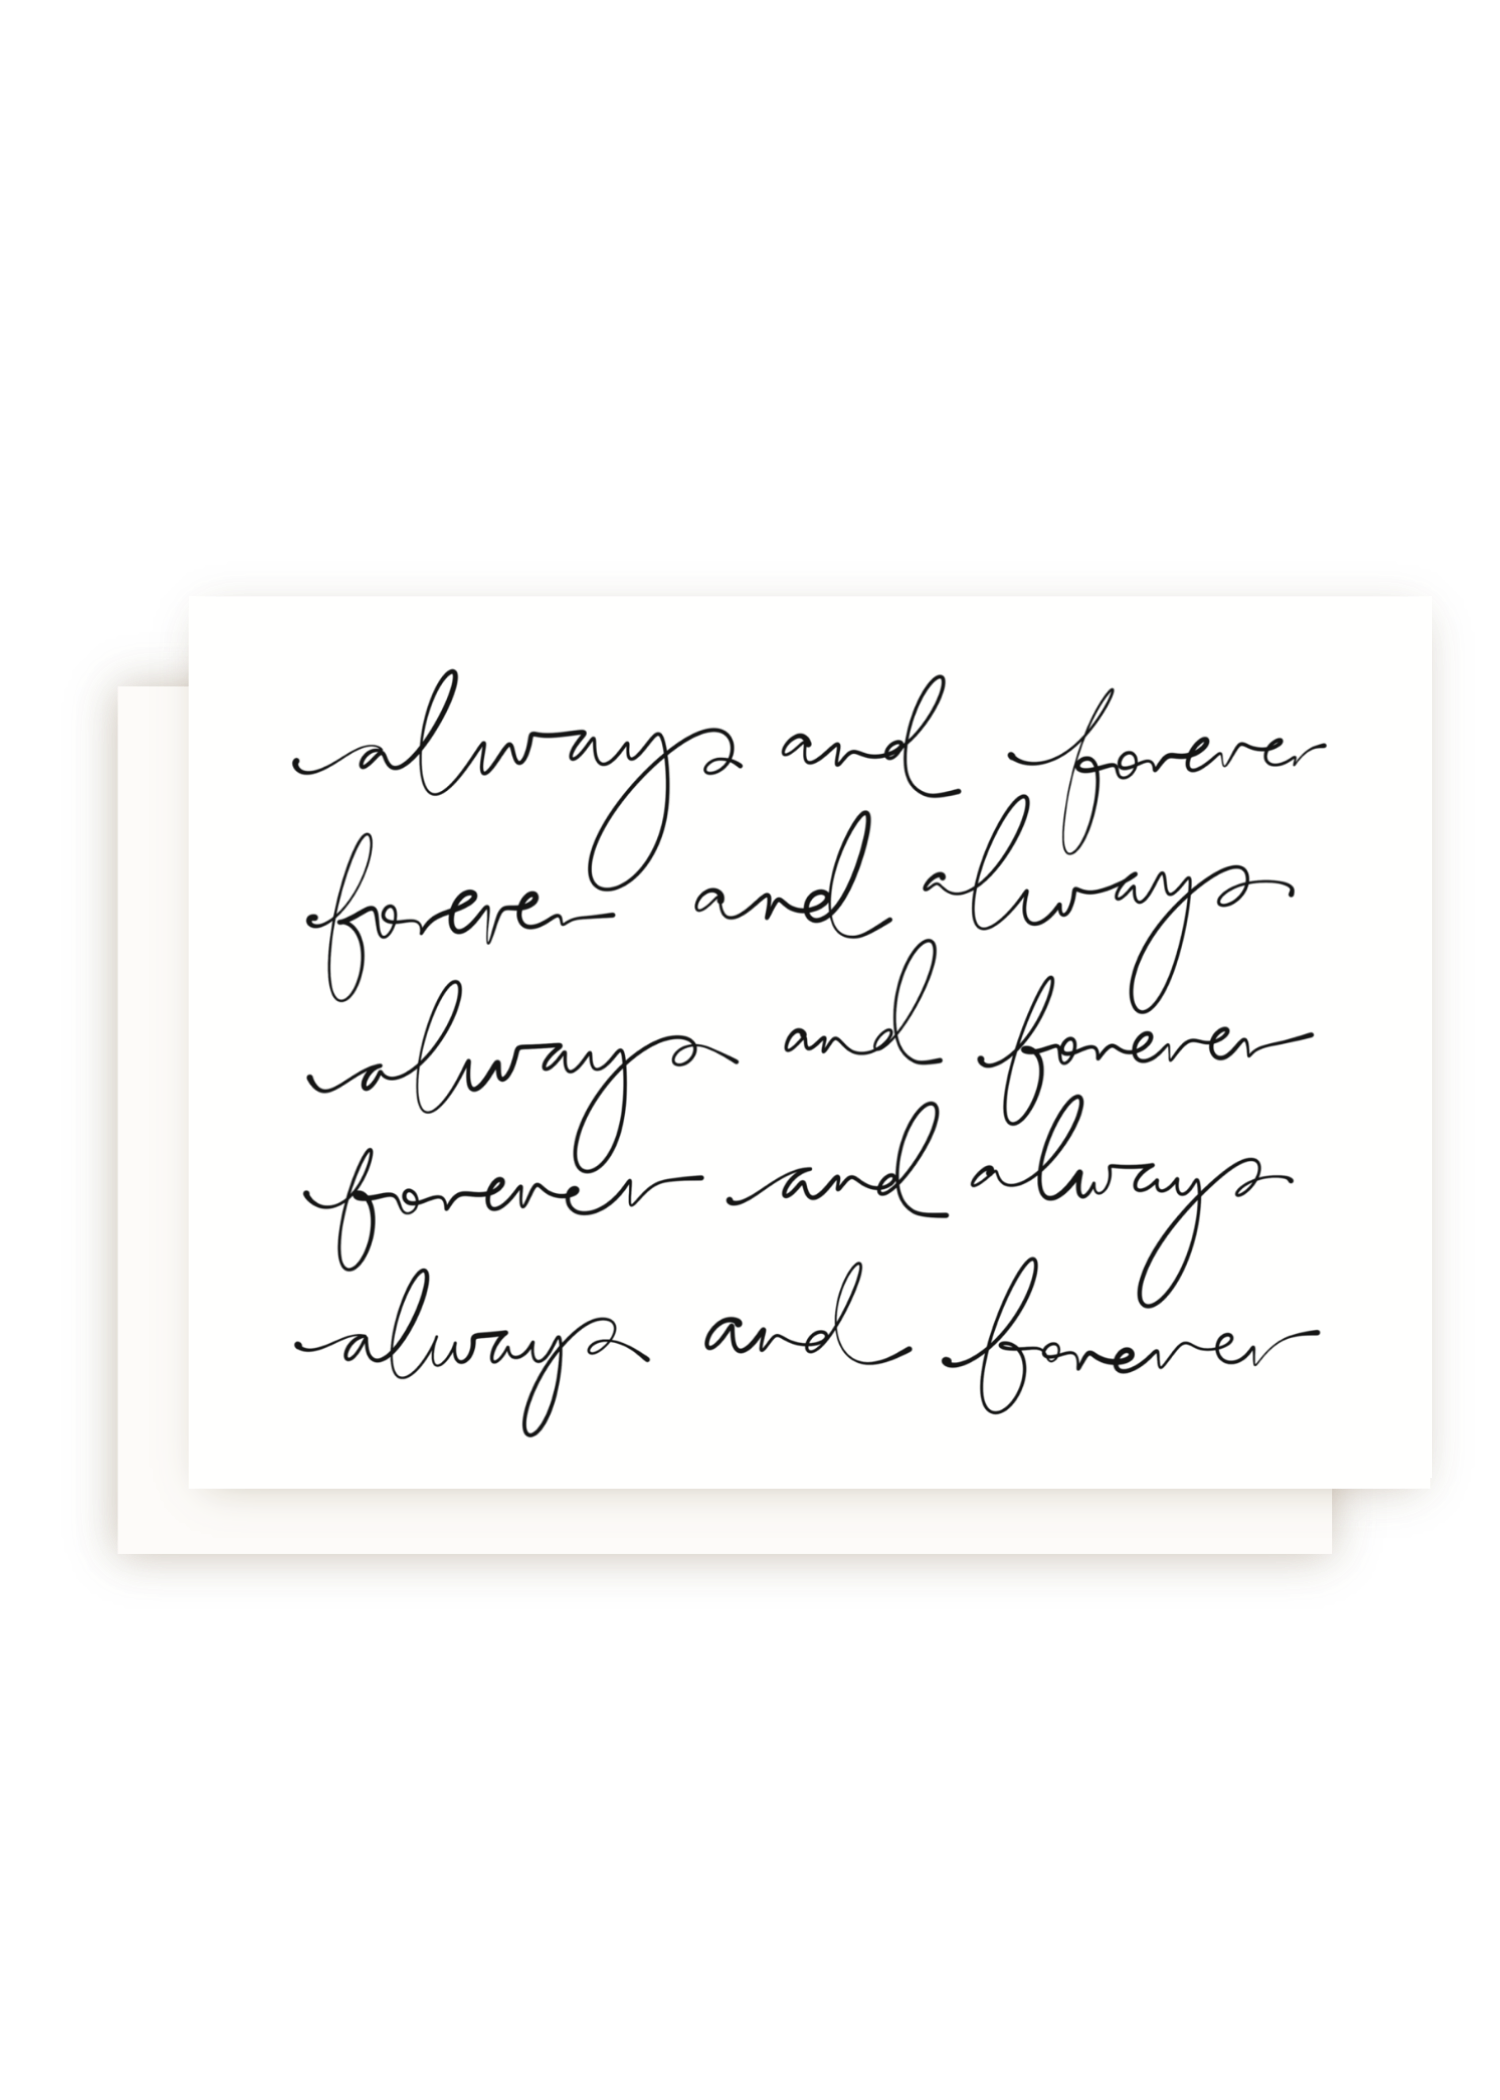 always and forever
forever and always
always and forever
forever and always
always and forever